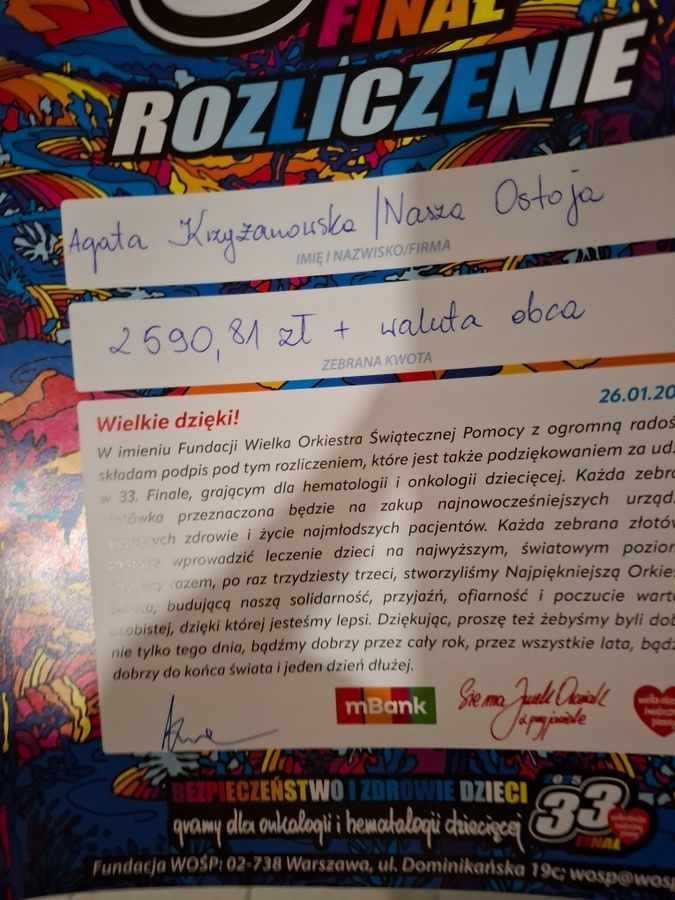 FINAŁ
ROZLICZENIE
Agata Krzyżanowska / Nasza Ostoja
IMIĘ I NAZWISKO/FIRMA
2590,81 zł + waluta obca
ZEBRANA KWOTA
26.01.20
Wielkie dzięki!
W imieniu Fundacji Wielka Orkiestra Świątecznej Pomocy z ogromną radoś
składam podpis pod tym rozliczeniem, które jest także podziękowaniem za ud
w 33. Finale, grającym dla hematologii i onkologii dziecięcej. Każda zebra
złotówka przeznaczona będzie na zakup najnowocześniejszych urząd
zdrowie i życie najmłodszych pacjentów. Każda zebrana złotów
wprowadzić leczenie dzieci na najwyższym, światowym poziom
razem, po raz trzydziesty trzeci, stworzyliśmy Najpiękniejszą Orkies
świata, budującą naszą solidarność, przyjaźń, ofiarność i poczucie wart
osobistej, dzięki której jesteśmy lepsi. Dziękując, proszę też żebyśmy byli dob
nie tylko tego dnia, bądźmy dobrzy przez cały rok, przez wszystkie lata, bądź
dobrzy do końca świata i jeden dzień dłużej.
mBank
Siema Jurek Owsiak
z przyjaciele
BEZPIECZEŃSTWO I ZDROWIE DZIECI
gramy dla onkologii i hematologii dziecięcej
2025
33
FINAŁ
Fundacja WOŚP: 02-738 Warszawa, ul. Dominikańska 19c; wosp@wosp